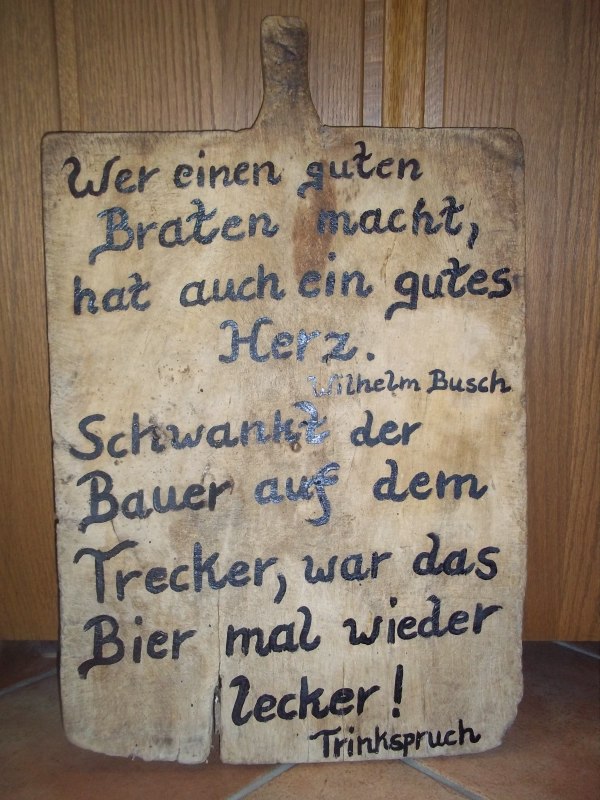 Wer einen guten
Braten macht,
hat auch ein gutes
Herz.
Wilhelm Busch
Schwankt der
Bauer auf dem
Trecker, war das
Bier mal wieder
lecker!
Trinkspruch